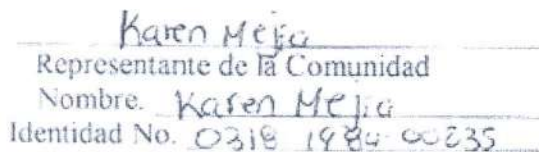 Karen Mejia
Representante de la Comunidad
Nombre. Karen Mejia
Identidad No. 0318 1984 00235